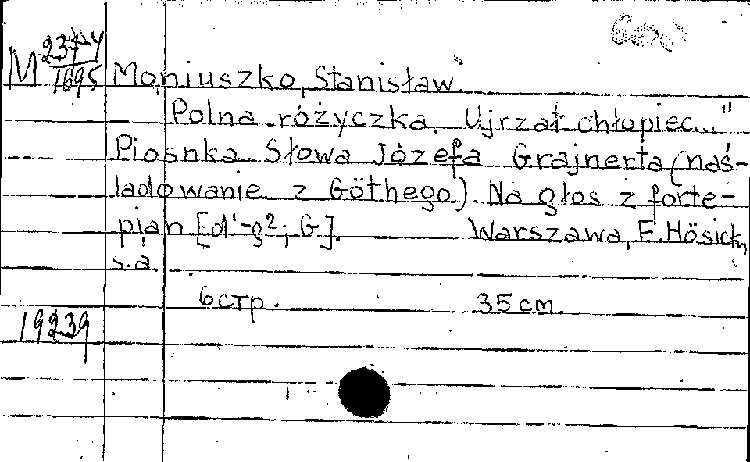 M 237-4/1695
Moniuszko, Stanisław.
Polna różyczka. Ujrzał chłopiec..."
Piosnka. Słowa Józefa Grajnerta (naś-
ladowanie z Göthego). Na głos z forte-
pian [d¹-g²; G]. Warszawa, F. Hösick,
s.a.
6 стр. 35 cm.
19239